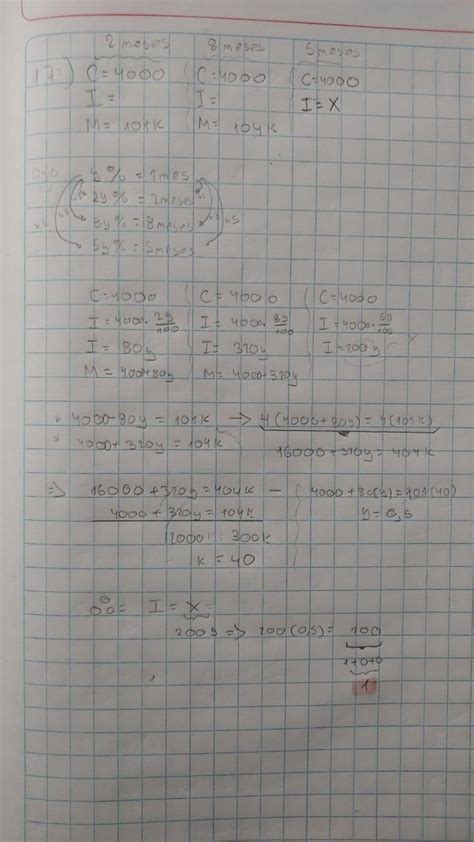 2 meses 8 meses 5 meses
17:) C=4000 C=4000 C=4000
I= I= I=X
M=101K M=104K
y%=1mes
2y%=2meses
8y%=8meses
5y%=5meses
C=4000 C=4000 C=4000
I=4000·2y/100 I=4000·8y/100 I=4000·5y/100
I=80y I=320y I=200y X
M=400+80y M=4000+320y
* 4000+80y=101K → 4(4000+80y)=4(101K)
* 4000+320y=104K 16000+320y=404K
⇒ 16000+320y=404K −
4000+320y=104K y=0,5
12000=300K
K=40
I=X=
200y ⇒ 200(0,5)=100
1+0+0
1